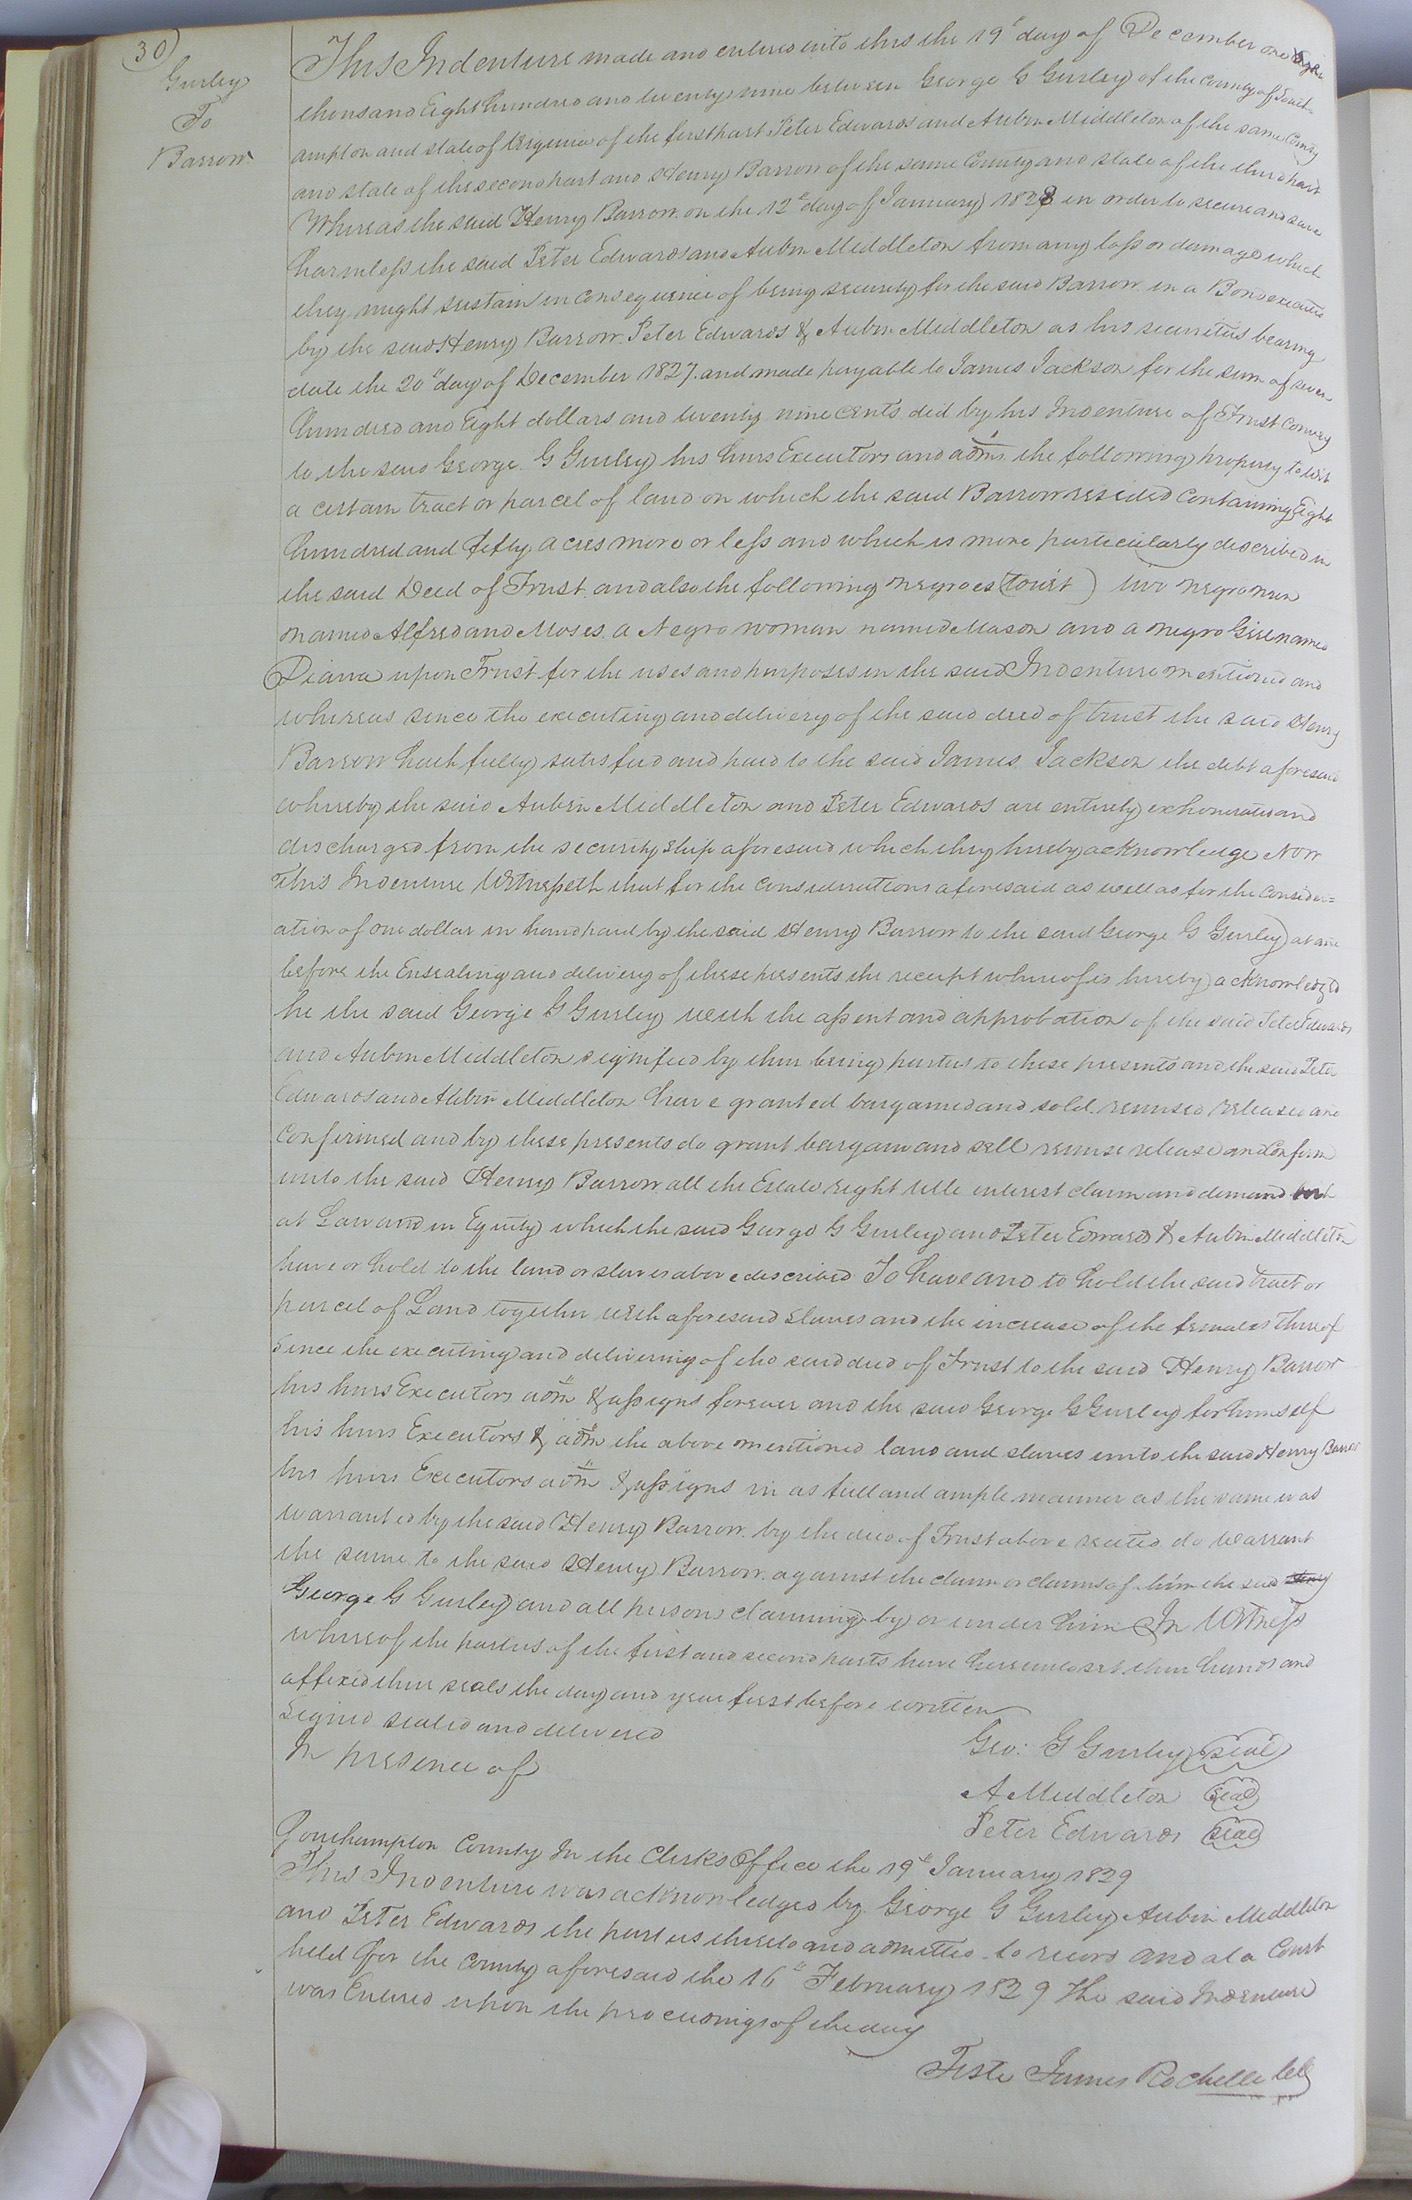 30
Gurley
To
Barrow
This Indenture made and entered into this the 19th day of December one
thousand Eight hundred and twenty nine between George G Gurley of the County of South-
ampton and state of Virginia of the first part Peter Edwards and Aubin Middleton of the same County
and state of the second part and Henry Barrow of the same County and state of the third part
Whereas the said Henry Barrow on the 12th day of January 1828 in order to secure and save
harmless the said Peter Edwards and Aubin Middleton from any loss or damage which
they might sustain in consequence of being security for the said Barrow in a Bond executed
by the said Henry Barrow Peter Edwards & Aubin Middleton as his securities bearing
date the 20th day of December 1827 and made payable to James Jackson for the sum of seven
hundred and Eight dollars and twenty nine cents did by his Indenture of Trust convey
to the said George G Gurley his heirs Executors and adms the following property to wit
a certain tract or parcel of land on which the said Barrow resided containing Eight
hundred and fifty acres more or less and which is more particularly described in
the said Deed of Trust and also the following negroes (to wit) two negro men
named Alfred and Moses a Negro woman named Mason and a negro Girl named
Diana upon Trust for the uses and purposes in the said Indenture mentioned and
whereas since the executing and delivery of the said deed of trust the said Henry
Barrow hath fully satisfied and paid to the said James Jackson the debt aforesaid
whereby the said Aubin Middleton and Peter Edwards are entirely exhonerated and
discharged from the security ship aforesaid which they hereby acknowledge Now
This Indenture Witnesseth that for the considerations aforesaid as well as for the consider=
ation of one dollar in hand paid by the said Henry Barrow to the said George G Gurley at and
before the Ensealing and delivery of these presents the receipt whereof is hereby acknowledged
he the said George G Gurley with the assent and approbation of the said Peter Edwards
and Aubin Middleton signified by their being parties to these presents and the said Peter
Edwards and Aubin Middleton have granted bargained and sold remised released and
confirmed and by these presents do grant bargain and sell remise release and confirm
unto the said Henry Barrow all the Estate right title interest claim and demand both
at Law and in Equity which the said George G Gurley and Peter Edwards & Aubin Middleton
have or hold to the land or slaves above described To have and to hold the said tract or
parcel of Land together with aforesaid slaves and the increase of the females thereof
since the executing and delivering of the said deed of Trust to the said Henry Barrow
his heirs Executors adm & assigns forever and the said George G Gurley for himself
his heirs Executors & adm the above mentioned land and slaves unto the said Henry Barrow
his heirs Executors adm & assigns in as full and ample manner as the same was
warranted by the said Henry Barrow by the deed of Trust above recited do warrant
the same to the said Henry Barrow against the claim or claims of him the said Henry
George G Gurley and all persons claiming by or under him In Witness
whereof the parties of the first and second parts have hereunto set their hands and
affixed their seals the day and year first before written
Signed sealed and delivered
In presence of
Geo: G Gurley seal
A Middleton seal
Peter Edwards seal
Southampton County In the Clerks Office the 19th January 1829
This Indenture was acknowledged by George G Gurley Aubin Middleton
and Peter Edwards the parties thereto and admitted to record and at a Court
held for the County aforesaid the 16th February 1829 The said Indenture
was Entered upon the proceedings of the day
Teste James Rochelle